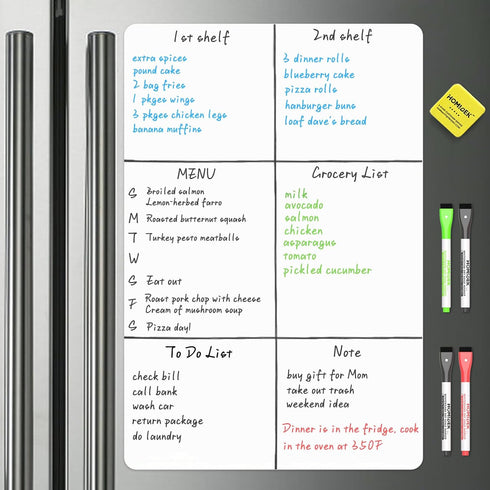 1st shelf
extra spices
pound cake
2 bag fries
1 pkges wings
3 pkges chicken legs
banana muffins
2nd shelf
3 dinner rolls
blueberry cake
pizza rolls
hamburger buns
loaf dave's bread
HOMIGEK
MENU
S Broiled salmon
Lemon-herbed farro
M Roasted butternut squash
T Turkey pesto meatballs
W
S Eat out
F Roast pork chop with cheese
Cream of mushroom soup
S Pizza day!
Grocery List
milk
avocado
salmon
chicken
asparagus
tomato
pickled cucumber
HOMIGEK
HOMIGEK
To Do List
check bill
call bank
wash car
return package
do laundry
Note
buy gift for Mom
take out trash
weekend idea
Dinner is in the fridge, cook
in the oven at 350F
HOMIGEK
HOMIGEK